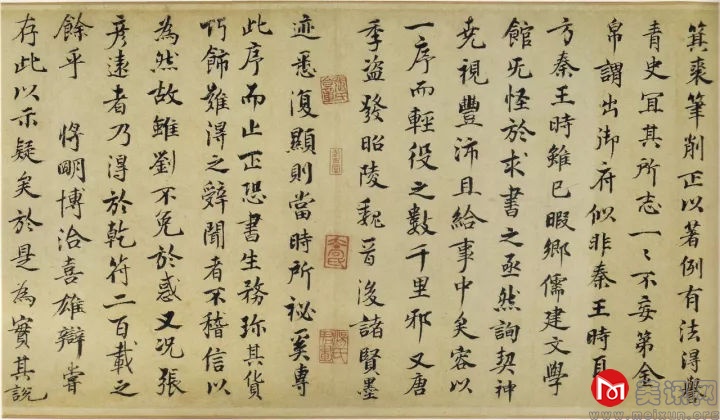 箕裘筆削正以著例有法得譽
青史冝其所志一〻不妄第金
帛謂出御府似非秦王時自
方秦王時雖已暇鄉儒建文學
館无怪於求書之亟然詢契神
堯視豐沛且給事中矣容以
一序而輕役之數千里邪又唐
季盜發昭陵魏晉後諸賢墨
迹悉復顯則當時所祕奚專
此序而止正恐書生務珎其貨
巧飾難得之辭聞者不稽信以
為然故雖劉不免於惑又況張
彥遠者乃得於乾符二百載之
餘乎 将眀博洽喜雄辯嘗
存此以示疑矣於是為實其說
美讯网
www.meixun.org